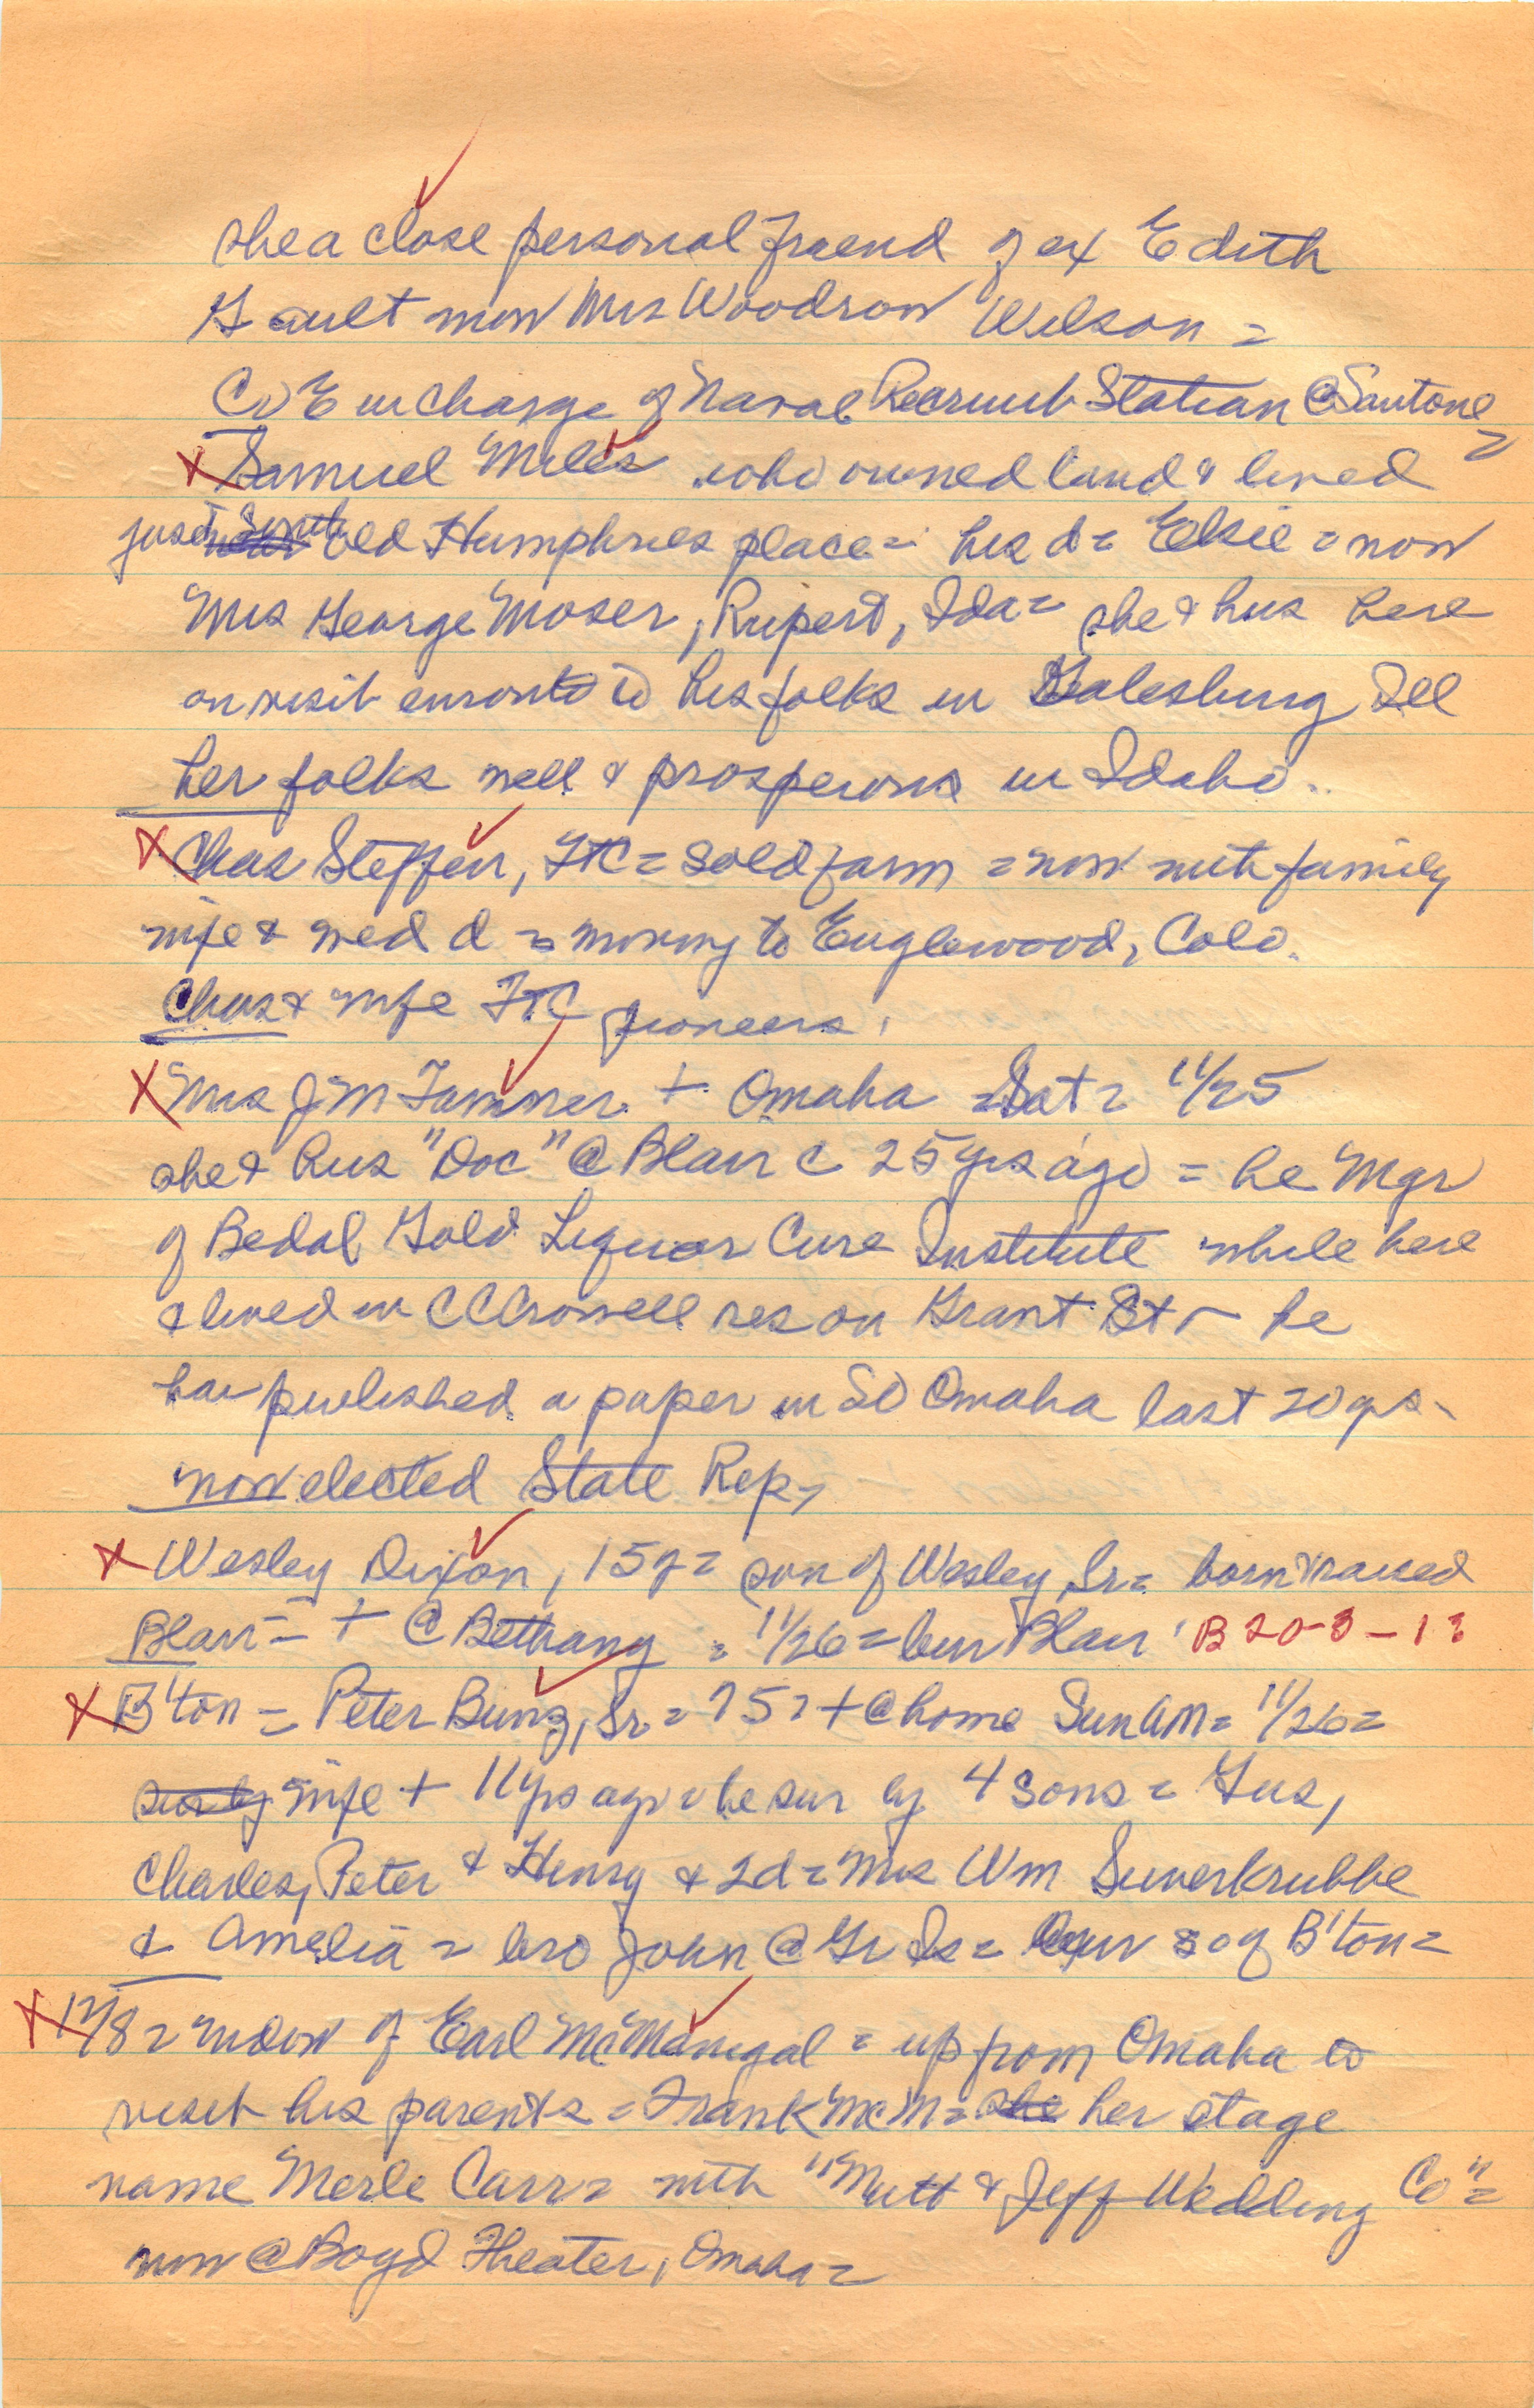 she a close personal friend of ex Edith
Gault now Mrs Woodrow Wilson =
C E in charge of Naval Recruit Station @ Santone =
X Samuel Miles who owned land & lived
just South old Humphries place = his d = Elsie = now
Mrs George Moser, Rupert, Ida = she & hus here
on visit enroute to his folks in Galesburg Ill
her folks well & prosperous in Idaho..
X Chas Steffen, FtC = sold farm = now with family
wife & wed d = moving to Englewood, Colo.
Chas & wife FtC pioneers.
X Mrs J M Tanner + Omaha = Sat = 11/25
she & hus "Doc" @ Blair c 25 yrs ago = he Mgr
of Bedal Gold Liquor Cure Institute while here
& lived in C C Crowell res on Grant St - he
has published a paper in So Omaha last 20 yrs -
now elected State Rep,
X Wesley Dixon, 15y = son of Wesley, Sr = born & raised
Blair = + @ Bethany = 11/26 = bur Blair B 20-3-1?
X B'ton = Peter Bunz, Sr = 75 = + @ home Sun AM = 11/26 =
sur by wife + 11 yrs ago = he sur by 4 sons = Gus,
Charles, Peter & Henry & 2d = Mrs Wm Suverkrubbe
& Amelia = bro John @ Gr Is = bur so of B'ton =
X 12/8 = widow of Earl McManigal = up from Omaha to
visit his parents = Frank McM = she her stage
name Merle Carr = with "Mutt & Jeff Wedding Co" =
now @ Boyd Theater, Omaha =